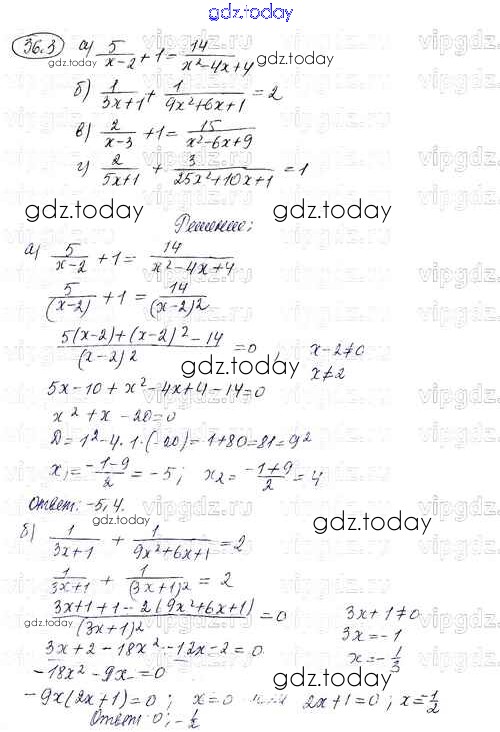 gdz.today
36.3 а) 5/(x-2) + 1 = 14/(x²-4x+4)
gdz.today
б) 1/(3x+1) + 1/(9x²+6x+1) = 2
в) 2/(x-3) + 1 = 15/(x²-6x+9)
г) 2/(5x+1) + 3/(25x²+10x+1) = 1
gdz.today gdz.today
Решение:
а) 5/(x-2) + 1 = 14/(x²-4x+4)
5/(x-2) + 1 = 14/(x-2)²
(5(x-2)+(x-2)²-14)/(x-2)² = 0 ; x-2≠0
gdz.today
x≠2
5x-10+x²-4x+4-14=0
x²+x-20=0
D=1²-4·1·(-20)=1+80=81=9²
x₁=(-1-9)/2=-5; x₂=(-1+9)/2=4
Ответ: -5; 4.
gdz.today gdz.today
б) 1/(3x+1) + 1/(9x²+6x+1) = 2
1/(3x+1) + 1/(3x+1)² = 2
(3x+1+1-2(9x²+6x+1))/(3x+1)² = 0 3x+1≠0
gdz.today
3x=-1
3x+2-18x²-12x-2=0
x=-1/3
-18x²-9x=0
-9x(2x+1)=0; x=0 или 2x+1=0; x=-1/2
Ответ: 0; -1/2
gdz.today